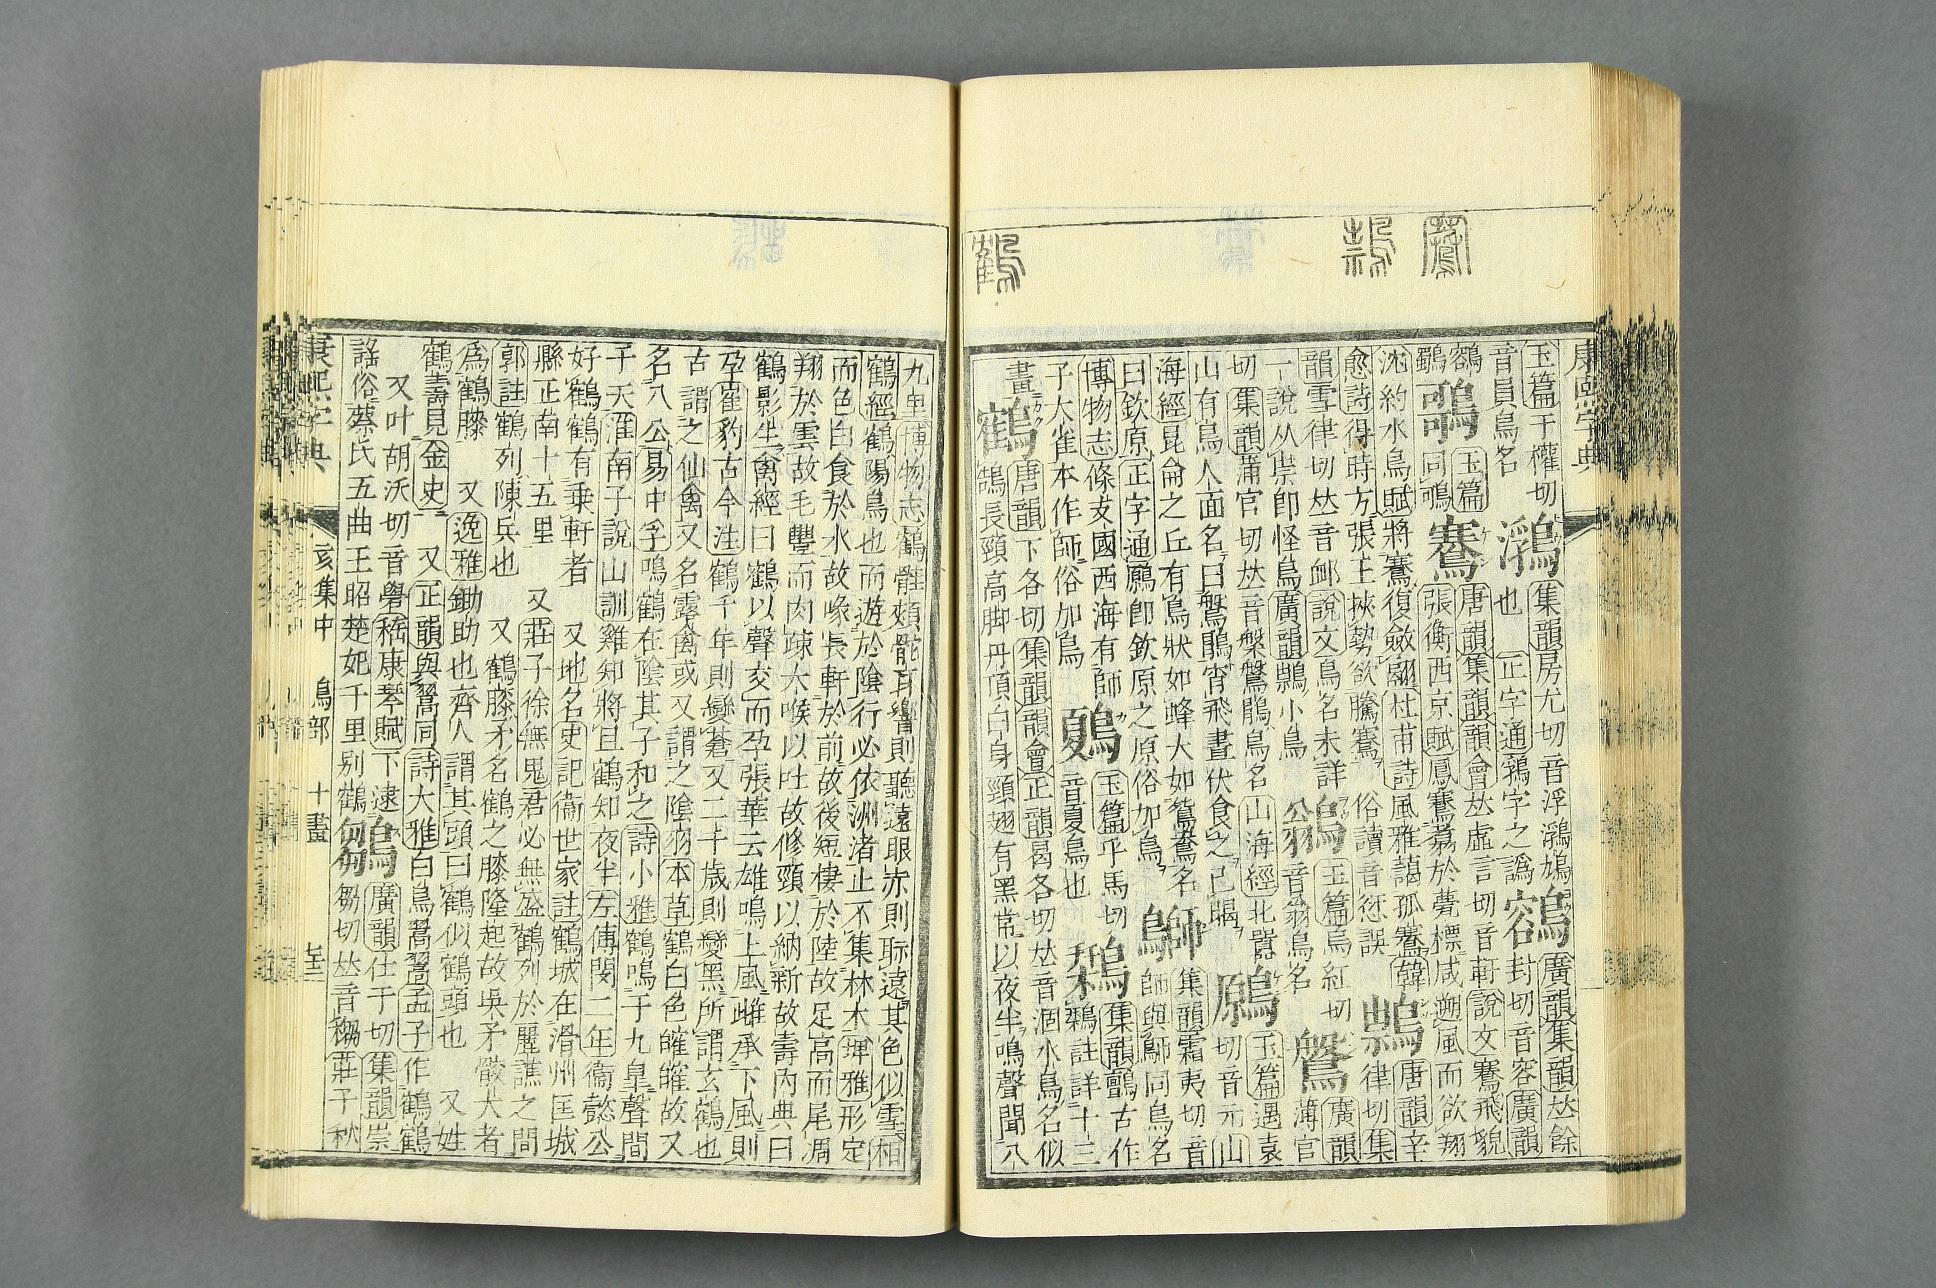 康熙字典
玉篇于權切 集韻房尤切音浮 廣韻集韻𠀤餘
音員鳥名 也 正字通鶉字之譌 鷛 封切音容廣韻
鶚 玉篇 鶱 唐韻集韻韻會𠀤虛言切音軒說文鶱飛貌
同鶚 張衡西京賦鳳鶱翥於甍標咸遡風而欲翔
沈約水鳥賦將鶱復斂翮杜甫詩風雅藹孤鶱韓
愈詩得時方張王挾勢欲騰鶱 俗讀音愆誤 䴅 唐韻辛律切集
韻雪律切𠀤音卹說文鳥名未詳 鶲 玉篇烏紅切 廣韻
一說从祟卽怪鳥廣韻䴅小鳥 音翁鳥名 鷘 薄官
切集韻蒲官切𠀤音槃鷘鶥鳥名山海經北囂
山有鳥人面名曰鷘鶥宵飛晝伏食之已暍 鶢 玉篇遇袁切音元山
海經昆侖之丘有鳥狀如蜂大如鴛鴦名 鰤 集韻霜夷切音
曰欽原正字通鶢卽欽原之原俗加鳥 師與鰤同鳥名
博物志條支國西海有師 鷍 玉篇乎馬切 鶔 集韻鸇古作
子大雀本作師俗加鳥 音夏鳥也 鶔註詳十三
畫 鶴 唐韻下各切集韻韻會正韻曷各切𠀤音涸水鳥名似
鵠長頸高脚丹頂白身頸翅有黑常以夜半鳴聲聞八
九里博物志鶴雖頰䯏耳響則聽遠眼赤則眎遠其色似雪相
鶴經鶴陽鳥也而遊於陰行必依洲渚止不集林木埤雅形定
而色白食於水故喙長軒於前故後短棲於陸故足高而尾凋
翔於雲故毛豐而肉疎大喉以吐故修頸以納新故壽內典曰
鶴影生禽經曰鶴以聲交而孕張華云雄鳴上風雌承下風則
孕崔豹古今注鶴千年則變蒼又二千歲則變黑所謂玄鶴也
古謂之仙禽又名露禽或又謂之陰羽本草鶴白色㿥㿥故又
名八公易中孚鳴鶴在陰其子和之詩小雅鶴鳴于九皐聲聞
于天淮南子說山訓雞知將旦鶴知夜半左傳閔二年衞懿公
好鶴鶴有乗軒者 又地名史記衞世家註鶴城在滑州匡城
縣正南十五里 又莊子徐無鬼君必無盛鶴列於麗譙之閒
郭註鶴列陳兵也 又鶴膝矛名鶴之膝隆起故吳矛骹大者
爲鶴膝 又逸雅鋤助也齊人謂其頭曰鶴似鶴頭也 又姓
鶴壽見金史 又正韻與翯同詩大雅白鳥翯翯孟子作鶴鶴
又叶胡沃切音礐嵇康琴賦下逮 鶵 廣韻仕于切集韻崇
謠俗蔡氏五曲王昭楚妃千里別鶴 芻切𠀤音雛莊子秋
康熙字典 亥集中 鳥部 十畫